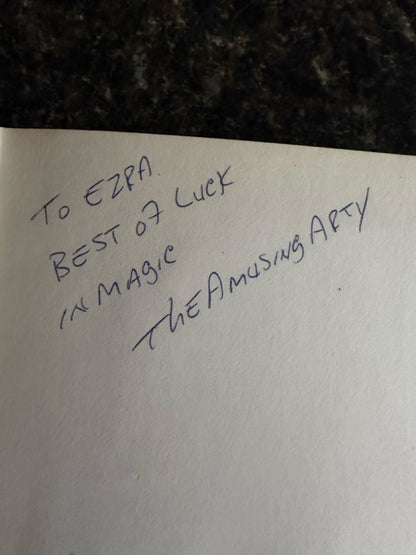 To EZRA.
BEST of Luck
IN MAgic
The AmusingARTY